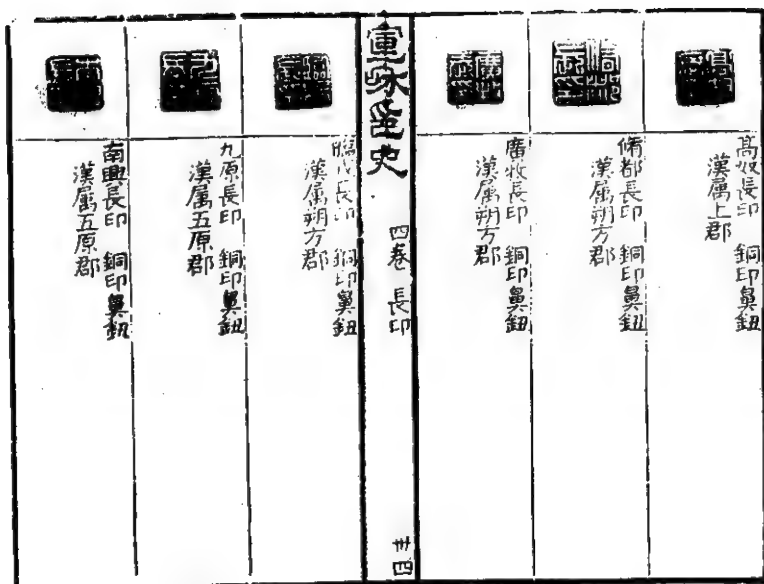 髙奴長印　銅印鼻鈕
漢属上郡
脩都長印　銅印鼻鈕
漢属朔方郡
廣牧長印　銅印鼻鈕
漢属朔方郡
宣和印史　四卷　長印　卅四
臨戎長印　銅印鼻鈕
漢属朔方郡
九原長印　銅印鼻鈕
漢属五原郡
南興長印　銅印鼻鈕
漢属五原郡